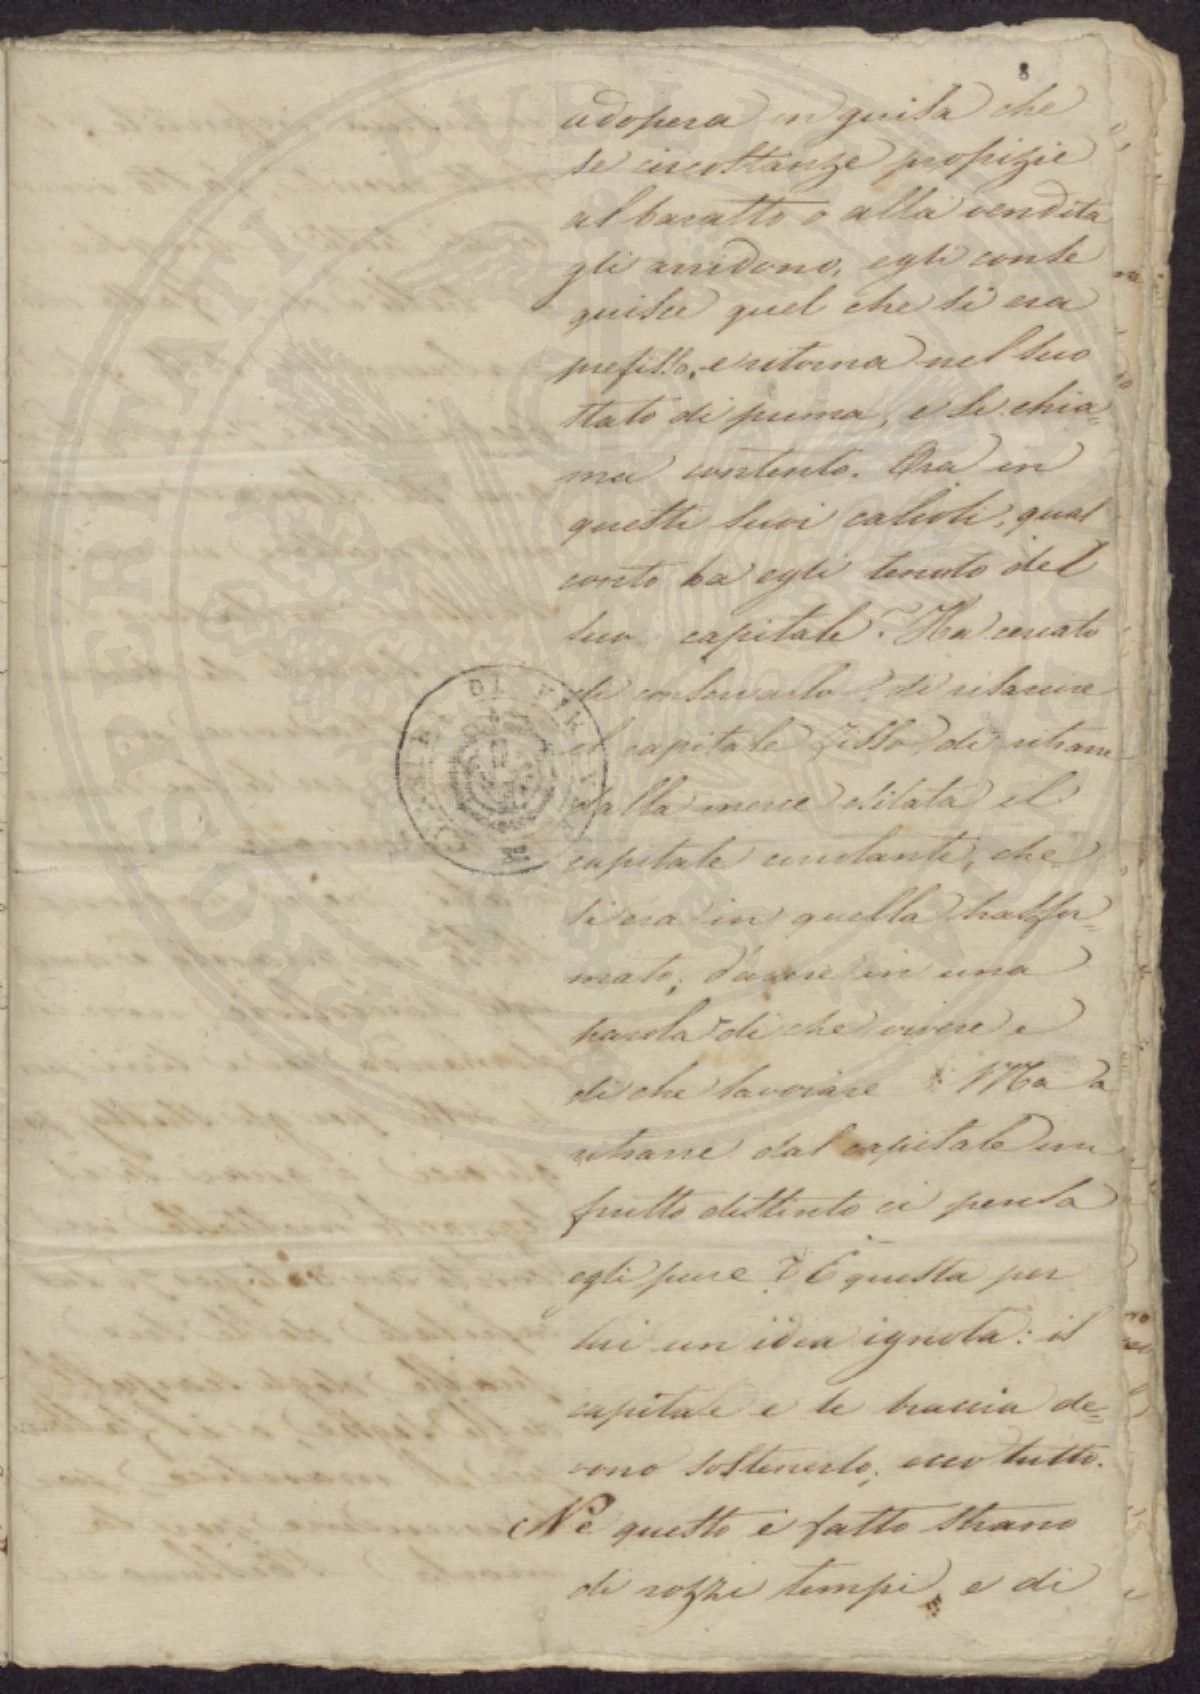 8
adopera in guisa che
se circostanze propizie
al baratto o alla vendita
gli arridono, egli conse
guisce quel che si era
prefisso, e ritorna nel suo
stato di prima, e si chia=
ma contento. Ora in
questi suoi calcoli, qual
conto ha egli tenuto del
suo capitale? Ha cercato
di conservarlo, di risarcire
il capitale fisso, di ritrarre
dalla merce esitata il
capitale circolante, che
si era in quella trasfor=
mato, d'avere in una
parola di che vivere e
di che lavorare. Ma a
ritrarre dal capitale un
frutto distinto ci pensa
egli pure? È questa per
lui un idea ignota: il
capitale e le braccia de=
vono sostenerlo, ecco tutto.
Nè questo è fatto strano
di rozzi tempi, e di
PROSPERITATI PUBLICAE